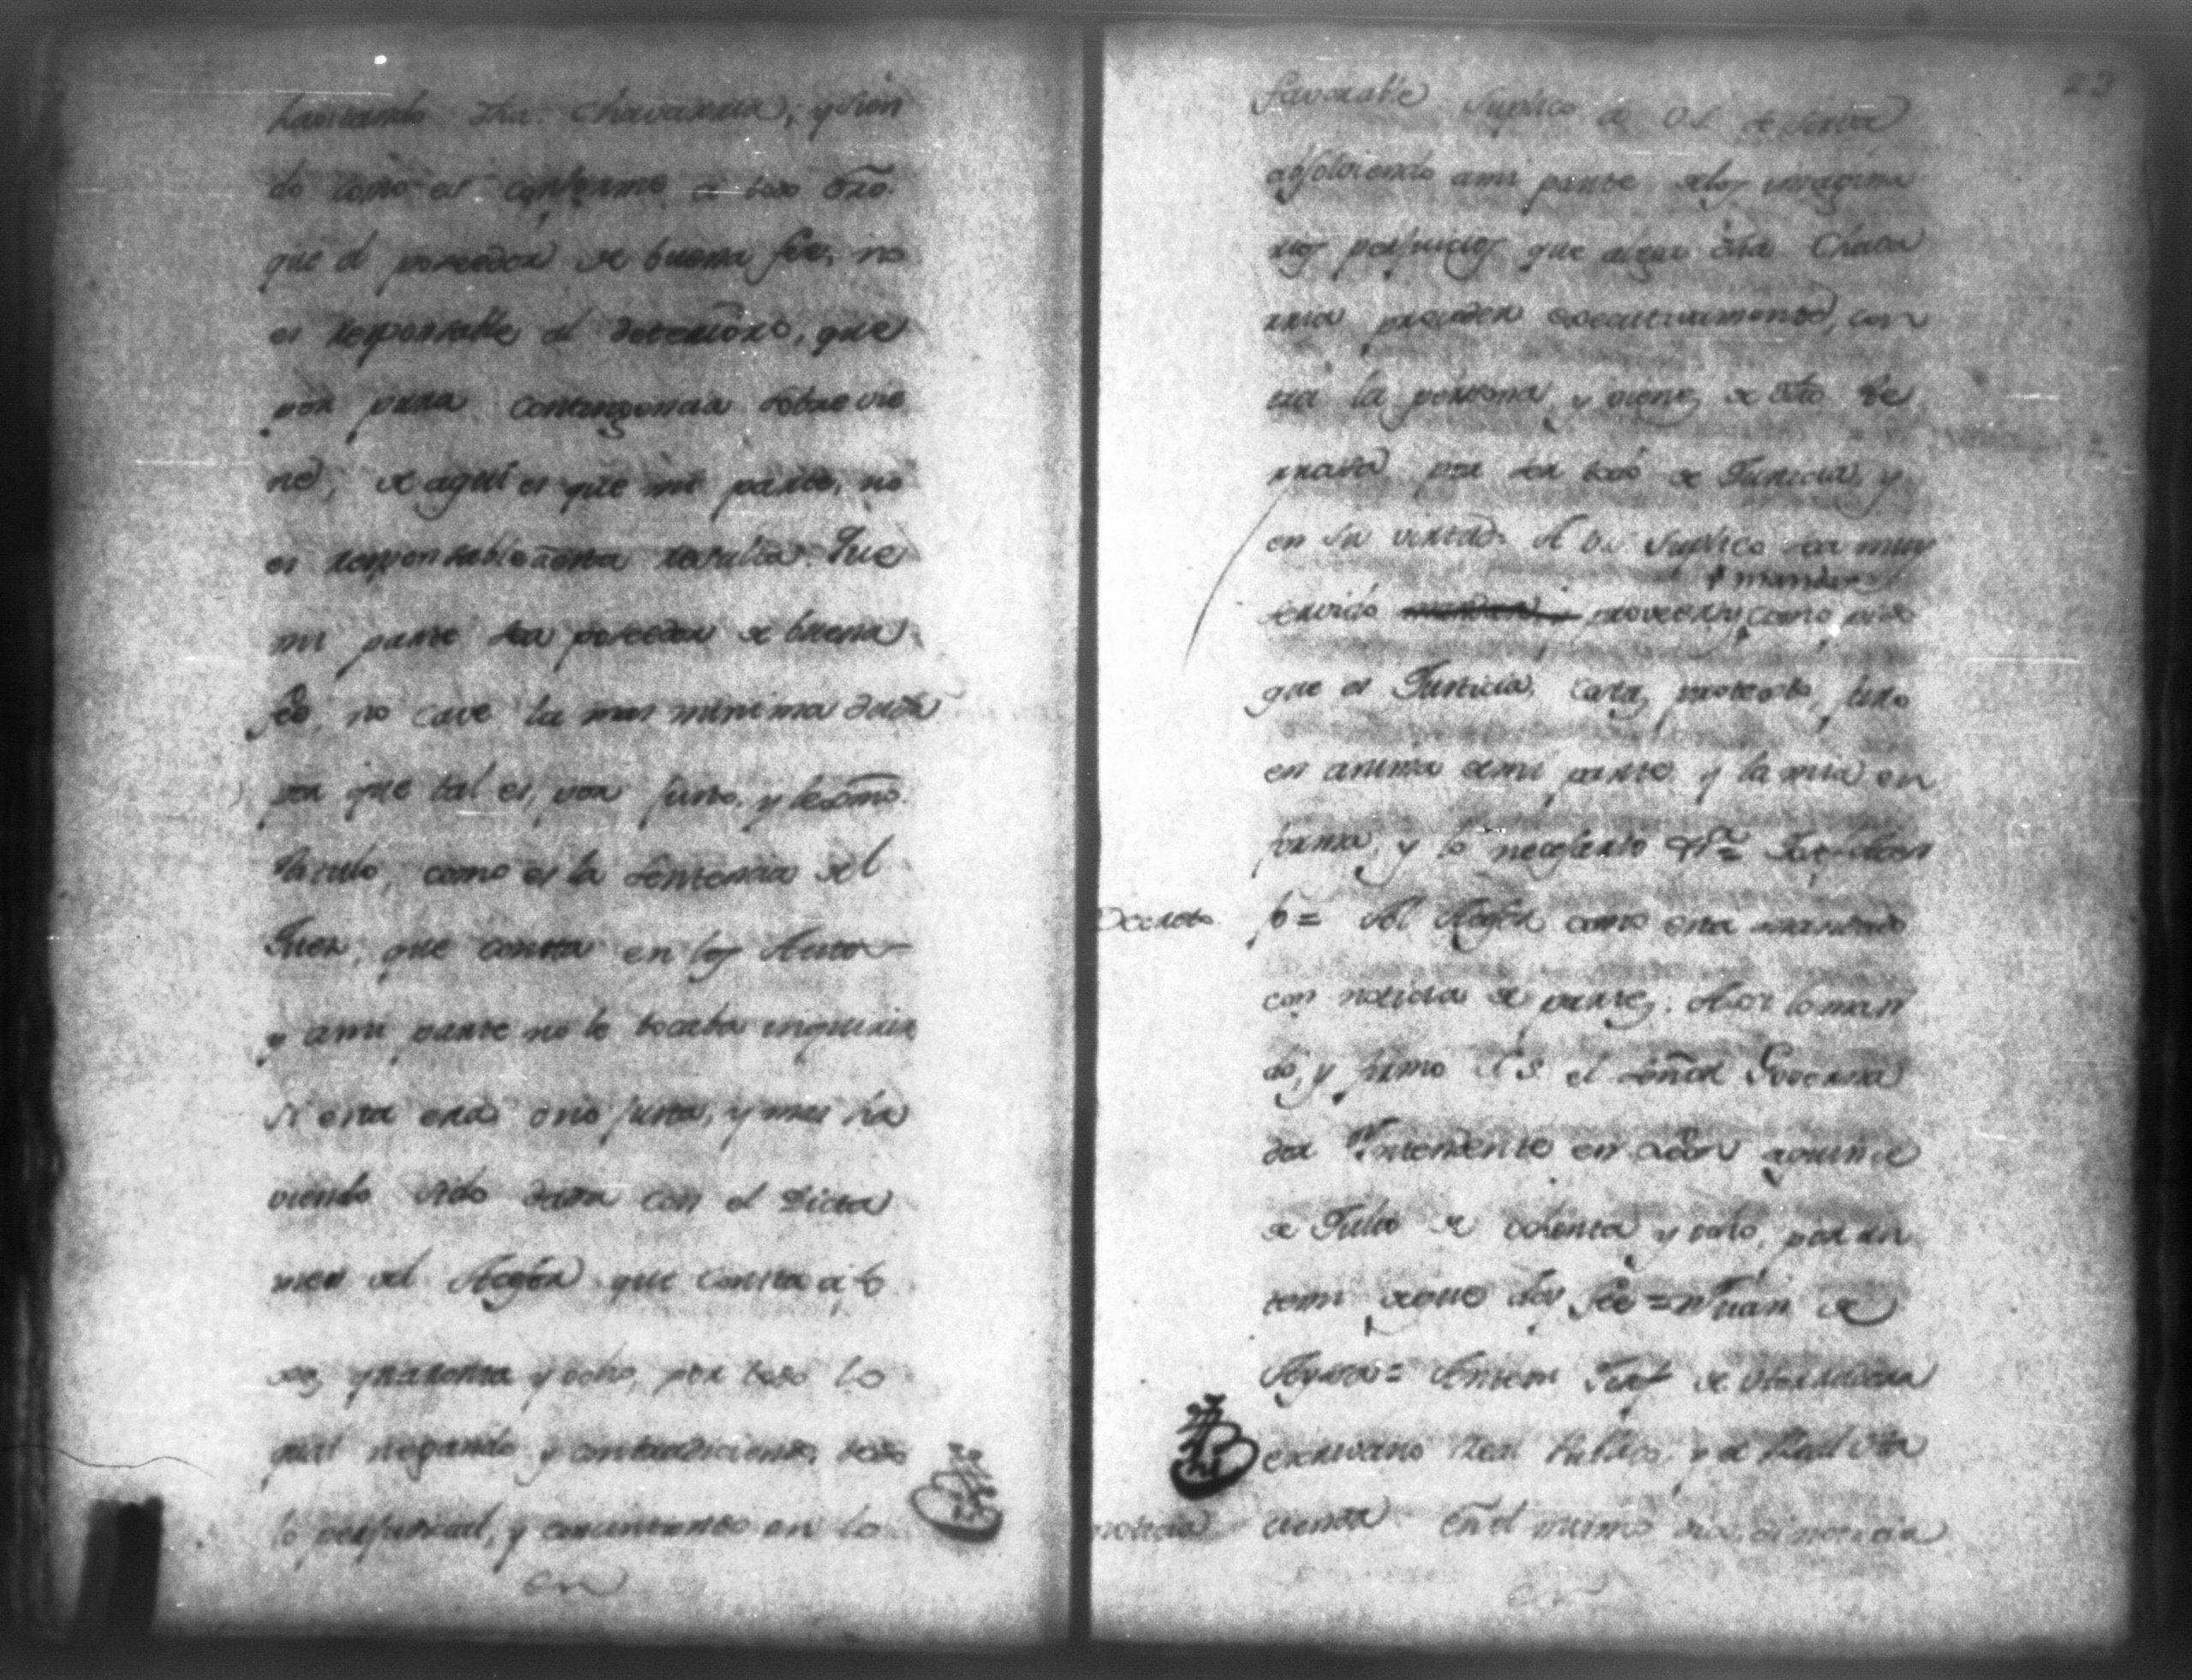 dha. Chavarria, y sien
do como es conforme a todo dro.
que el poseedor de buena fee, no
es responsable al deterioro, que
por pura contingencia sobrevie
ne, de aqui es que mi parte, no
es responsable resulta. Que
mi parte sea poseedor de buena
fee, no cave la mas minima duda
por que tal es, por justo, y lexmo.
titulo, como es la Sentencia del
Juez, que consta en los Autos
y ami parte no le tocaba inquirir
si esta era, o no justa, y mas ha
viendo sido dada con el Dicta
men del Asesor que consta a f
xas quarenta y ocho, por todo lo
qual negando y contradiciendo, todo
lo perjudicial, y consintiendo en lo
en
23
favorable Suplico a Us. se sirva
absolviendo ami parte delos imagina
rios perjuicios que alega dha. Chava
rria proceder executivamente, con
tra la persona, y vienes de dho He
rrera por ser todo de Justicia, y
en su virtud. A Us. Suplico sea muy
mandar
servido proveer, y como pido
que es Justicia, costas, protesto, juro
en anima demi parte y la mia en
forma, y lo necesario &a =
Decreto fo = Al Asesor como esta mandado
con noticia de partes. Asi lo man
do, y firmo S S. el Señor Governa
dor Yntendente en quinse
de Julio de ochenta y ocho, por an
temi deque doy fee = Juan de
=
escrivano Real Publico, y de Real
cienda En el mismo dia, di noticia
noticia